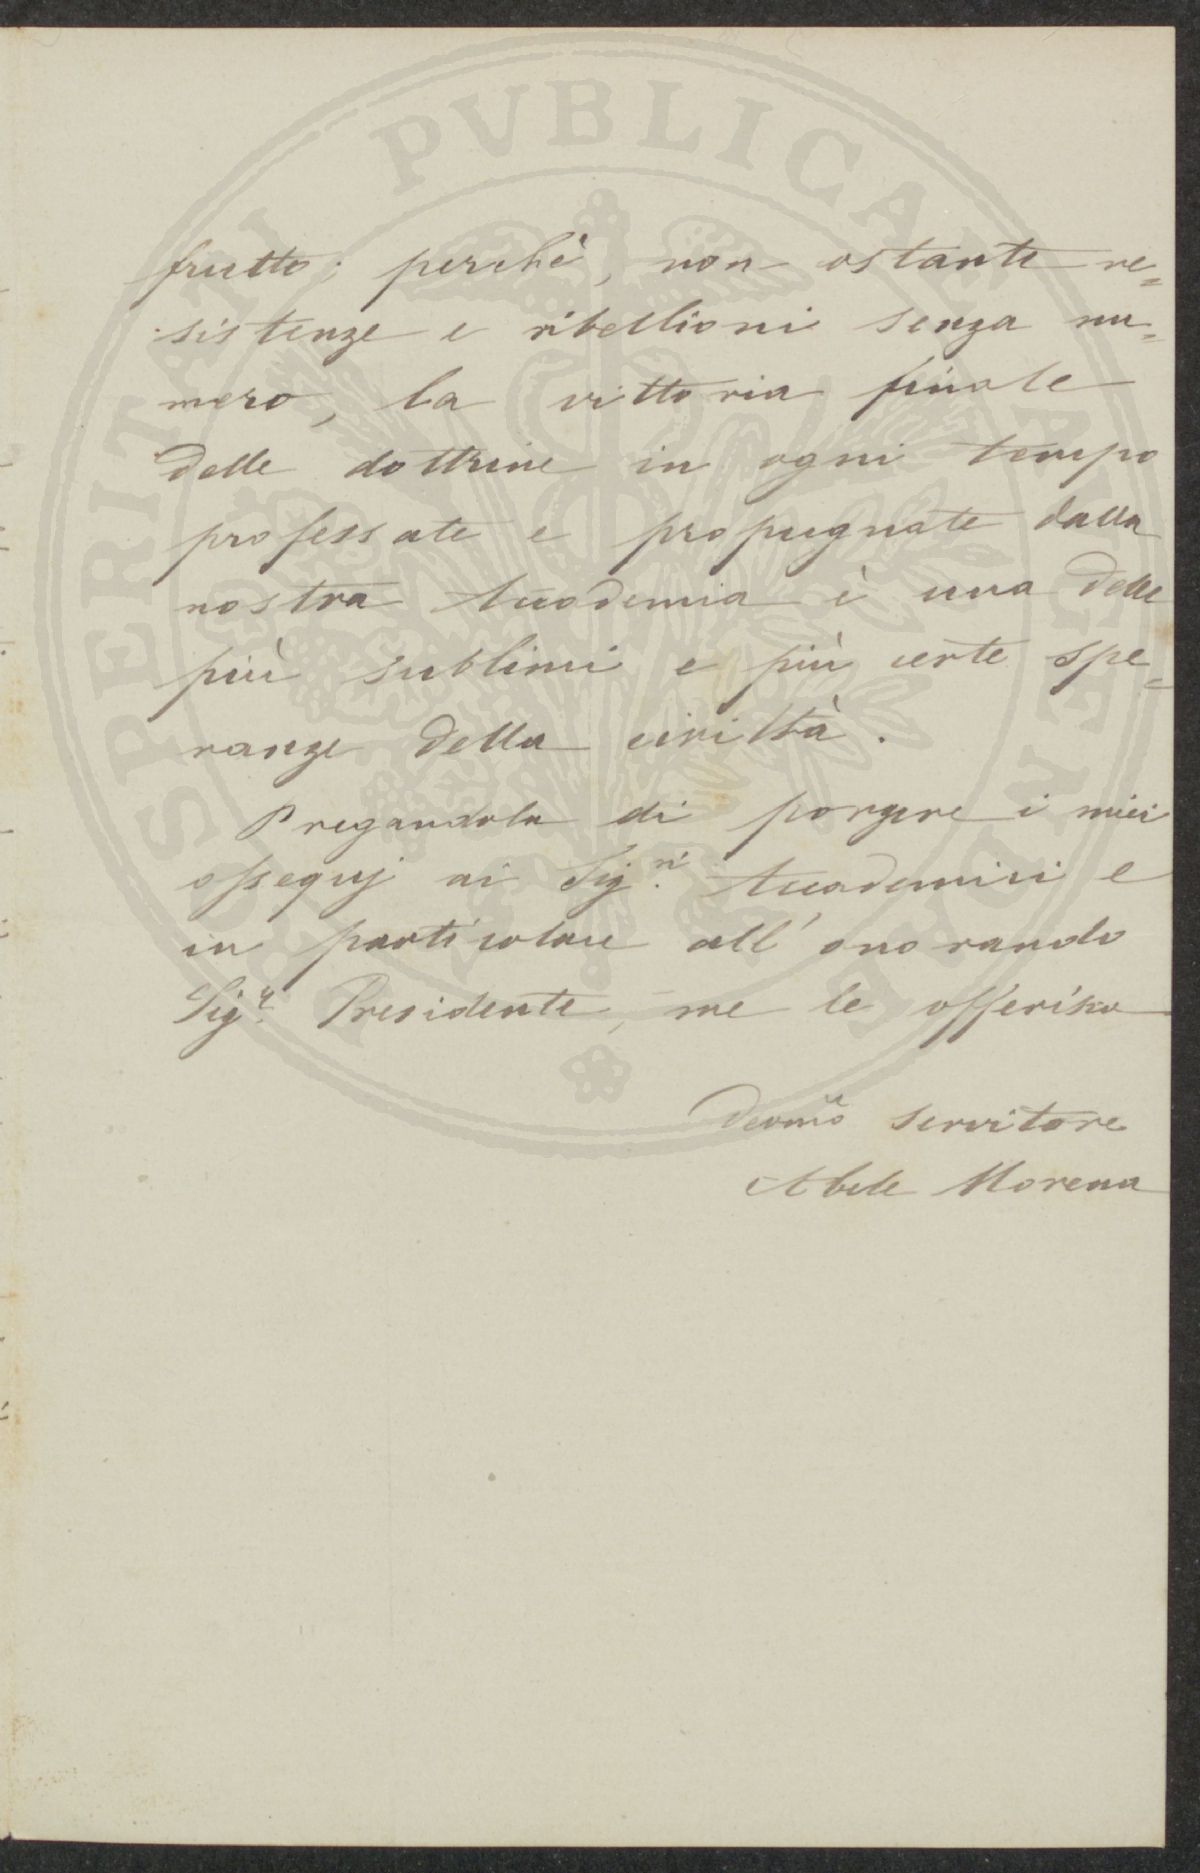 frutto; perchè, non ostante re=
sistenze e ribellioni senza nu=
mero, la vittoria finale
delle dottrine in ogni tempo
professate e propugnate dalla
nostra Accademia è una delle
più sublimi e più certe spe=
ranze della civiltà.
Pregandola di porgere i miei
ossequj ai Sig.ri Accademici e
in particolare all'onorando
Sig.r Presidente, me le offerisco
Devmo servitore
Abele Morena
PROSPERITATI PVBLICAE AVGENDAE